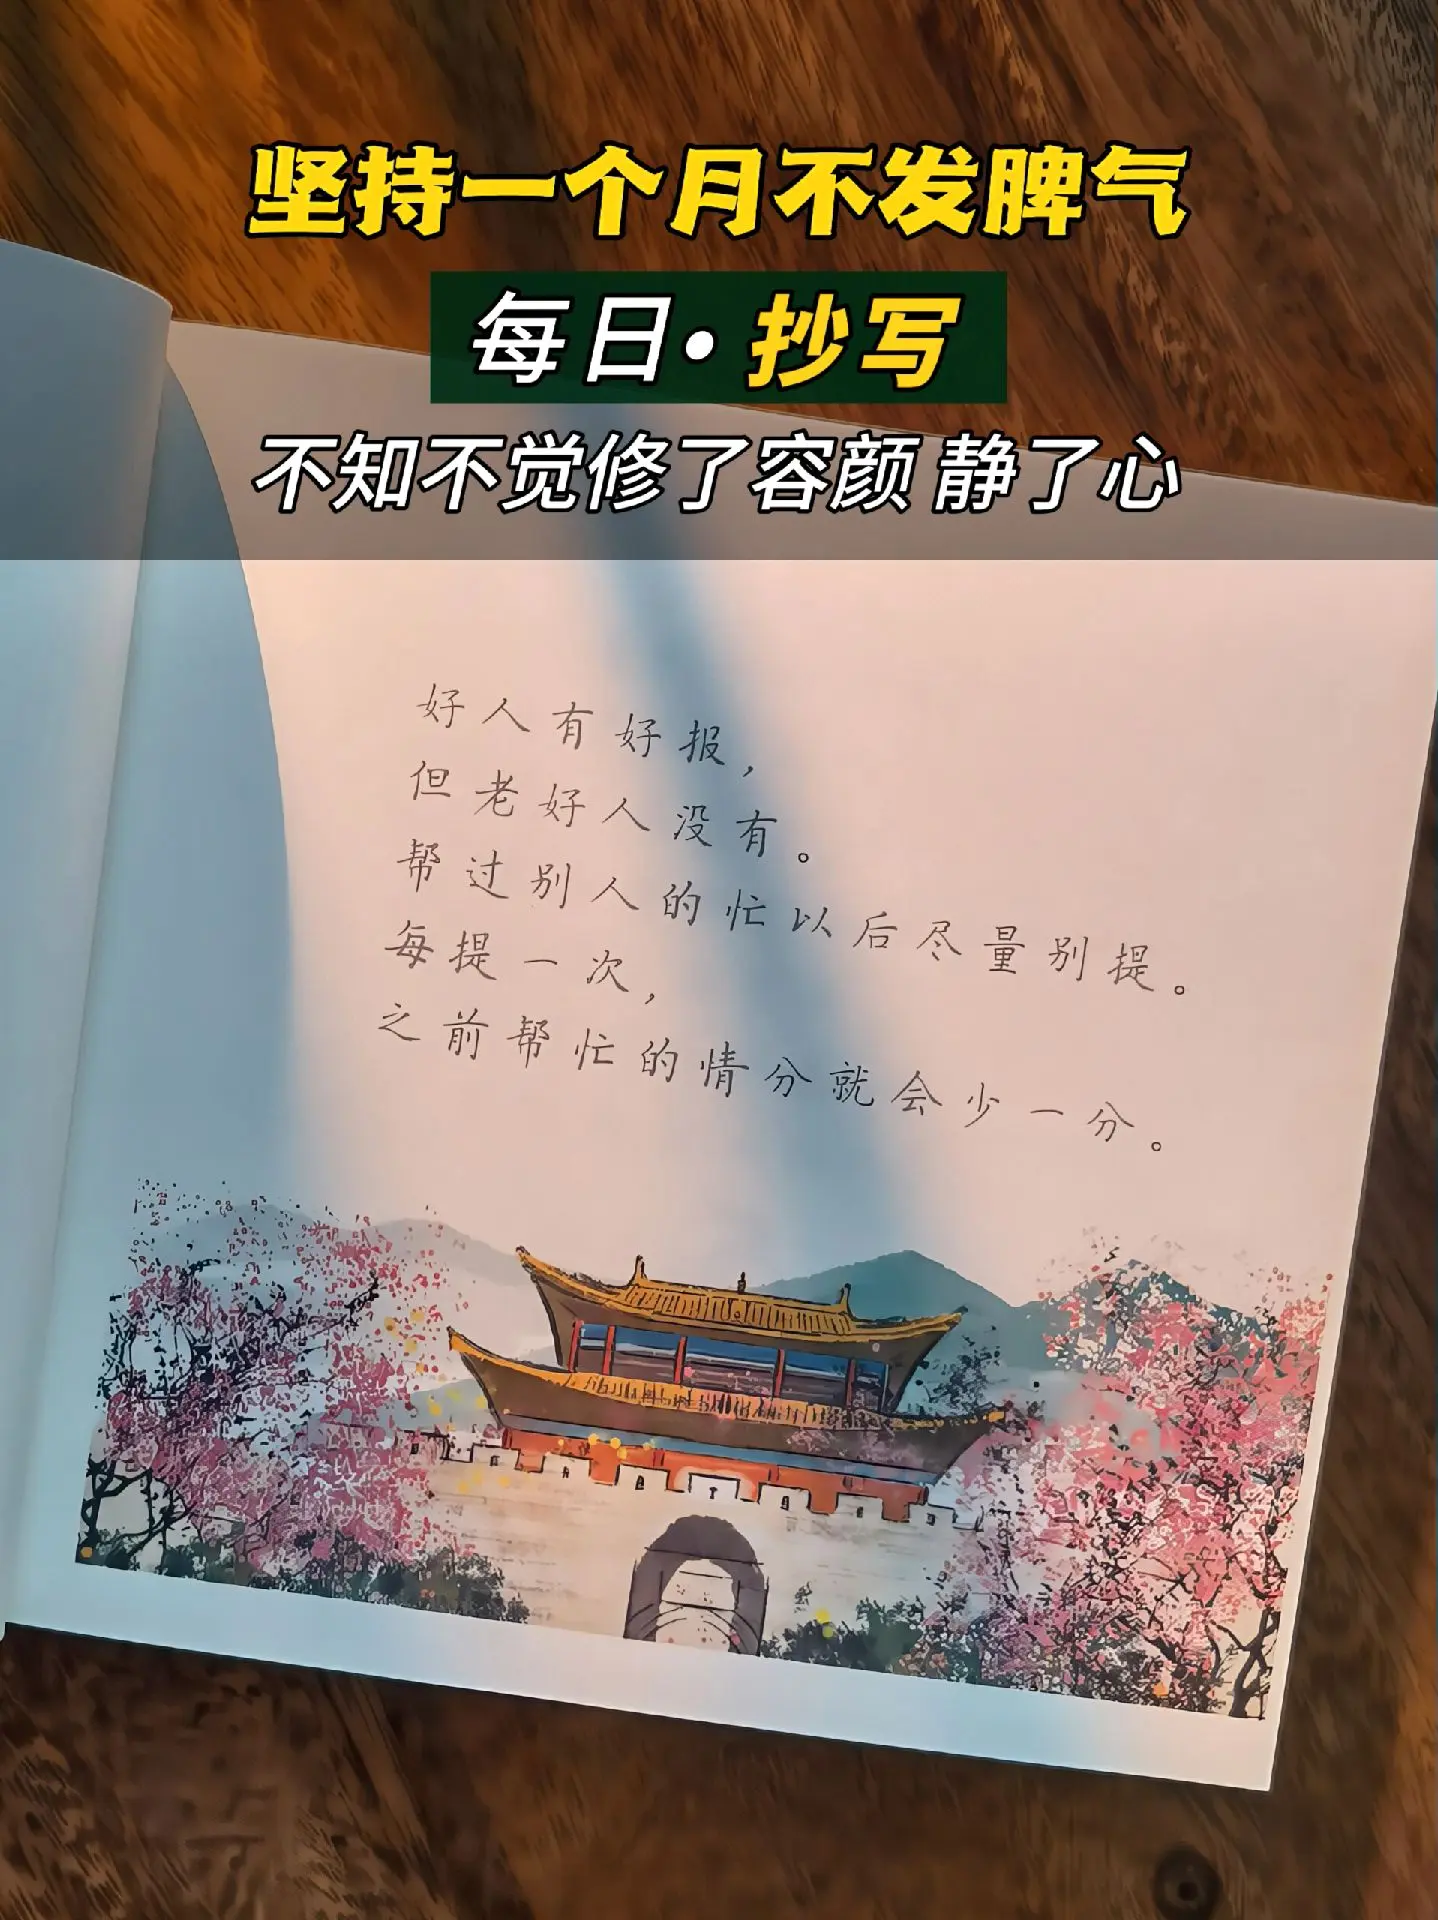 坚持一个月不发脾气
每日·抄写
不知不觉修了容颜 静了心
好人有好报，
但老好人没有。
帮过别人的忙以后尽量别提。
每提一次，
之前帮忙的情分就会少一分。